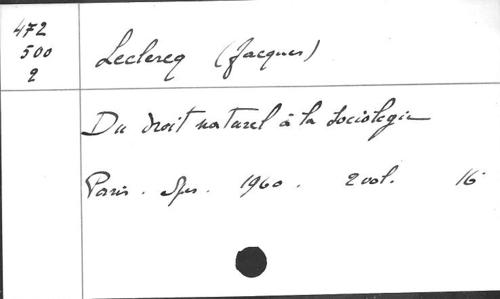 472
500
2
Leclercq (Jacques)
Du droit naturel à la sociologie
Paris. Spes. 1960. 2 vol. 16